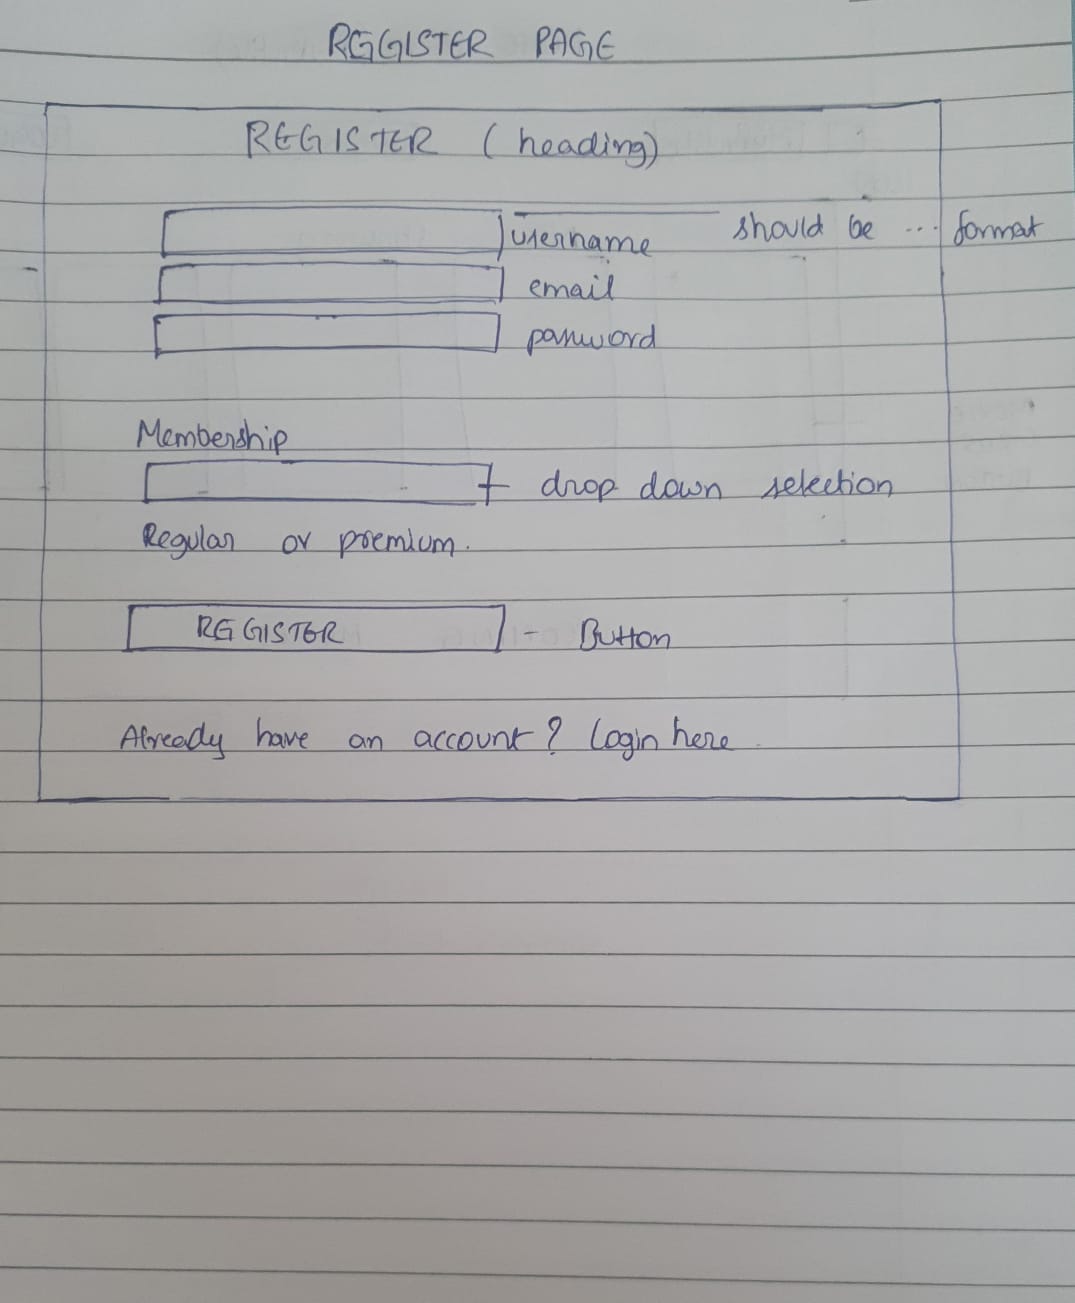 REGISTER PAGE
REGISTER (heading)
username should be ... format
email
password
Membership
drop down selection
Regular or premium.
REGISTER - Button
Already have an account? Login here